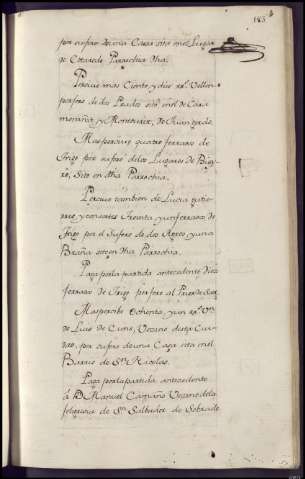 185
por su foro de una Casa sita en el Lugar
de Cotarelo Parrochia dha.
Percive mas Ciento, y diez rs. Vellon
por foro de dos Prados sitos en el de Casa
monina, y Montouto, de
Mas percive quatro ferrados de
Trigo por su foro de los Lugares de
Sito en dha Parrochia.
Percive tambien de Lucia Gutie
rrez, y consortes treinta y un ferrados de
Trigo por el Su foro de dos Agros, y una
Braña sito en dha Parrochia.
Paga por la partida antecedente Diez
ferrados de Trigo por foro al Prior de
Mas percibe Ochenta, y un rs. Vn.
de Luis de Cuns, Vecino desta Ciu
dad, por su foro de una Casa sita en el
Barrio de Sn. Nicolas.
Paga por la partida antecedente
â D. Manuel Vecino de la
feligresia de Sn. Salbador de Sobrado